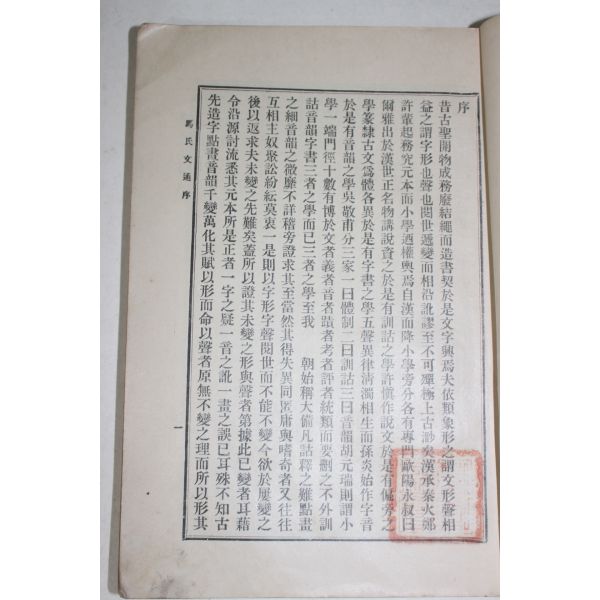 序
昔古聖開物成務廢結繩而造書契於是文字興焉夫依類象形之謂文形聲相
益之謂字形也聲也閱世遞變而相沿訛謬至不可殫極上古渺矣漢承秦火鄭
許輩起務究元本而小學迺權輿焉自漢而降小學旁分各有專門歐陽永叔曰
爾雅出於漢世正名物講說資之於是有訓詁之學許慎作說文於是有偏旁之
學篆隸古文爲體各異於是有字書之學五聲異律清濁相生而孫炎始作字音
於是有音韻之學吳敬甫分三家一曰體制二曰訓詁三曰音韻胡元瑞則謂小
學一端門徑十數有博於文者義者音者蹟者考者評者統類而要删之不外訓
詁音韻字書三者之學而已三者之學至我 朝始稱大備凡詁釋之難點畫
之細音韻之微靡不詳稽旁證求其至當然其得失異同匿庸與嗜奇者又往往
互相主奴聚訟紛紜莫衷一是則以字形字聲閱世而不能不變今欲於屢變之
後以返求夫未變之先難矣蓋所以證其未變之形與聲者第據此已變者耳藉
令沿源討流悉其元本所是正者一字之疑一音之訛一畫之誤已耳殊不知古
先造字點畫音韻千變萬化其賦以形而命以聲者原無不變之理而所以形其
馬氏文通序
一